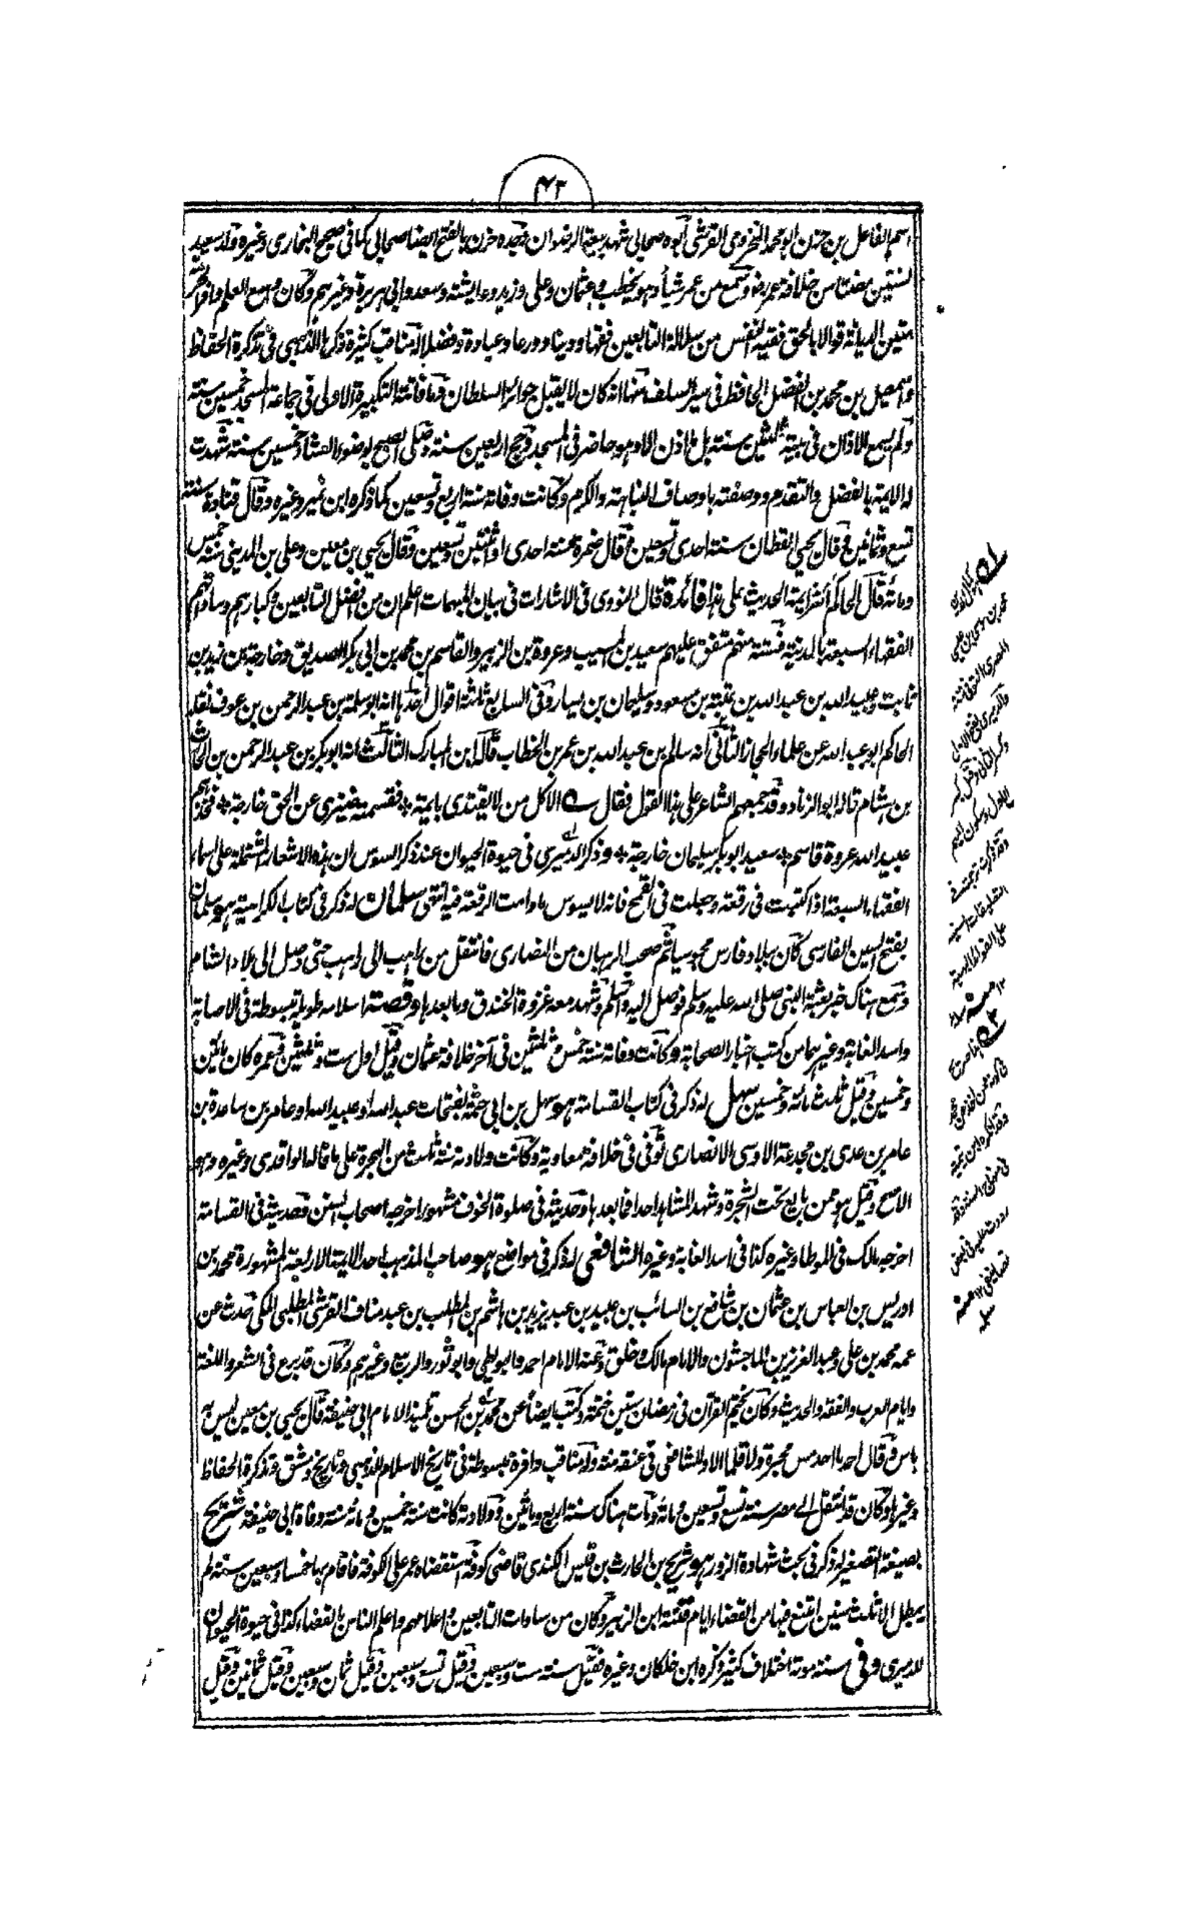 ۴۲
اسم الفاعل بن حزن ابو محمد المخزومی القرشی ابوه صحابی شهد بیعة الرضوان وجده حزن بالفتح ایضا صحابی کما فی صحیح البخاری وغیره ولد سعید
لسنتین مضتا من خلافة عمر رضه وسمع من عمر شیأ وهو یخطب وعثمان وعلی وزید وعایشة وسعد وابی هریرة وغیرهم وکان واسع العلم وافر
متین الدیانة قوالا بالحق فقیه النفس من سلالة التابعین فقها ودینا وورعا وعبادة وفضلا له مناقب کثیرة ذکرها الذهبی فی تذکرة الحفاظ
واسمعیل بن محمد بن الفضل الحافظ فی سیر السلف منها انه کان لا یقبل جوائز السلطان وما فاتته التکبیرة الاولی فی جماعة المسجد خمسین سنة
ولم یسمع الاذان فی بیته ثلثین سنة بل ما اذن الا وهو حاضر فی المسجد وحج اربعین سنة وصلی الصبح بوضوء العشاء خمسین سنة شهدت
له الایمة بالفضل والتقدم ووصفته باوصاف النباهة والکرم وکانت وفاته سنة اربع وتسعین کما ذکره ابن نمیر وغیره وقال قتادة سنة
تسع وثمانین وقال یحیی القطان سنة احدی وتسعین وقال ضمرة سنة احدی او ثنتین وتسعین وقال یحیی بن معین وعلی بن المدینی سنة خمس
ومائة قال الحاکم اکثر ایمة الحدیث علی هذا فائدة قال النووی فی الاشارات فی بیان المبهمات اعلم ان من افضل التابعین وکبارهم وساداتهم
الفقهاء السبعة بالمدینة فستة منهم متفق علیهم سعید بن المسیب وعروة بن الزبیر والقاسم بن محمد بن ابی بکر الصدیق وخارجة بن زید بن
ثابت وعبید الله بن عبد الله بن عتبة بن مسعود وسلیمان بن یسار وفی السابع ثلثة اقوال احدها انه ابو سلمة بن عبد الرحمن بن عوف نقله
الحاکم ابو عبد الله عن علماء الحجاز الثانی انه سالم بن عبد الله بن عمر بن الخطاب قاله ابن المبارک الثالث انه ابو بکر بن عبد الرحمن بن الحارث
بن هشام قاله ابو الزناد وقد جمعهم الشاعر علی هذا القول فقال ے الا کل من لا یقتدی بایمة * فقسمته ضیزی عن الحق خارجة * فخذهم
عبید الله عروة قاسم * سعید ابو بکر سلیمان خارجة * وذکر الدمیری فی حیوة الحیوان عند ذکر السوس ان هذه الاشعار المشتملة علی اسماء
الفقهاء السبعة اذا کتبت فی رقعة وجعلت فی القمح فانه لا یسوس ما دامت الرقعة فیه انتهی سلمان له ذکر فی کتاب الکراهیة هو سلمان
بفتح السین الفارسی کان ببلاد فارس مجوسیا ثم صحب الرهبان من النصاری فانتقل من راهب الی راهب حتی وصل الی بلاد الشام
وسمع هناک خبر بعثة النبی صلی الله علیه وسلم فوصل الیه واسلم وشهد معه غزوة الخندق وما بعدها وقصة اسلامه طویلة مبسوطة فی الاصابة
واسد الغابة وغیرهما من کتب اخبار الصحابة وکانت وفاته سنة خمس وثلثین فی آخر خلافة عثمان وقیل اول ست وثلثین وعمره کان مائتین
وخمسین وقیل ثلث مائة وخمسین سهل له ذکر فی کتاب القسامة هو سهل بن ابی حثمة بفتحات عبد الله او عبید الله او عامر بن ساعدة بن
عامر بن عدی بن مجدعة الاوسی الانصاری توفی فی خلافة معاویة وکانت ولادته سنة ثلث من الهجرة علی ما قاله الواقدی وغیره وهو
الاصح وقیل هو ممن بایع تحت الشجرة وشهد المشاهد احدا فما بعدها وحدیثه فی صلوة الخوف مشهور اخرجه اصحاب السنن وحدیثه فی القسامة
اخرجه مالک فی الموطا وغیره کذا فی اسد الغابة وغیره الشافعی له ذکر فی مواضع هو صاحب المذهب احد الایمة الاربعة المشهورة محمد بن
ادریس بن العباس بن عثمان بن شافع بن السائب بن عبید بن عبد یزید بن هاشم بن المطلب بن عبد مناف القرشی المطلبی المکی حدث عن
عمه محمد بن علی وعبد العزیز بن الماجشون والامام مالک وخلق وعنه الامام احمد والبویطی وابو ثور والربیع وغیرهم وکان قد برع فی الشعر واللغة
وایام العرب والفقه والحدیث وکان یختم القرآن فی رمضان ستین ختمة وکتب ایضا عن محمد بن الحسن تلمیذ الامام ابی حنیفة قال یحیی بن معین لیس به
باس وقال احمد ما احد مس محبرة ولا قلما الا وللشافعی فی عنقه منة وله مناقب وافرة مبسوطة فی تاریخ الاسلام للذهبی وتاریخ دمشق وتذکرة الحفاظ
وغیرها وکان قد انتقل الی مصر سنة تسع وتسعین ومائة ومات هناک سنة اربع ومائتین وولادته کانت سنة خمسین ومائة سنة وفاة ابی حنیفة شریح
بصیغة التصغیر له ذکر فی بحث شهادة الزور هو شریح بن الحارث بن قیس الکندی قاضی کوفة استقضاه عمر علی الکوفة فاقام بها خمسا وسبعین سنة لم
یبطل الا ثلث سنین امتنع فیها من القضاء ایام فتنة ابن الزبیر وکان من سادات التابعین واعلامهم واعلم الناس بالقضاء کذا فی حیوة الحیوان
للدمیری وفی سنة موته اختلاف کثیر ذکره ابن خلکان وغیره فقیل سنة ست وسبعین وقیل تسع وسبعین وقیل ثمان وسبعین وقیل ثمانین وقیل
محمد بن موسی بن عیسی